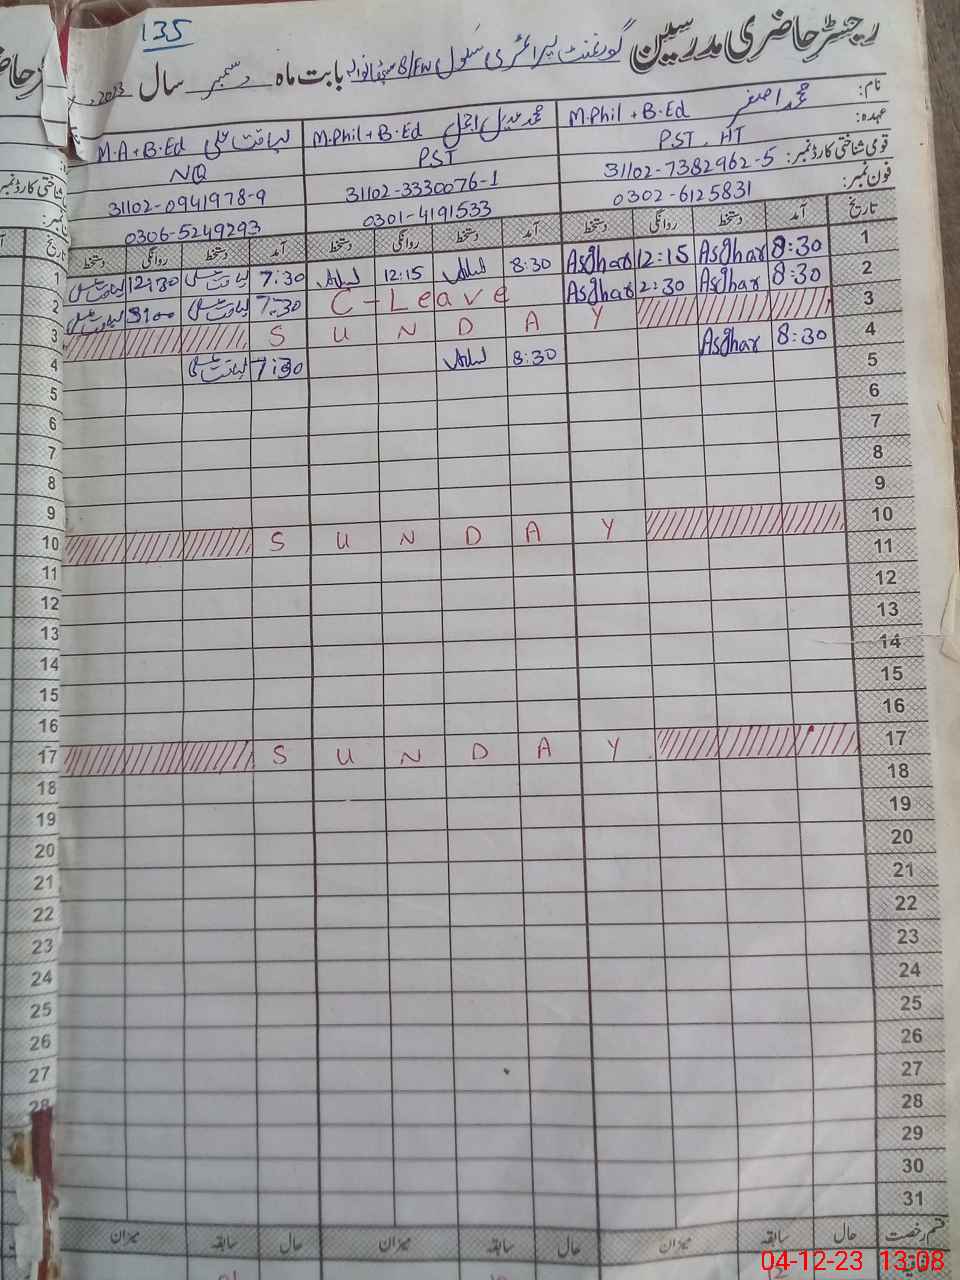 135
رجسٹر حاضری مدرسین گورنمنٹ پرائمری سکول 8/FW بابت ماہ دسمبر سال 2023
نام: محمد اصغر M.Phil + B.Ed محمد عدیل اجمل M.Phil + B.Ed لیاقت علی M.A + B.Ed
عہدہ: PST, HT PST NQ
قومی شناختی کارڈ نمبر: 31102-7382962-5 31102-3330076-1 31102-0941978-9
فون نمبر: 0302-6125831 0301-4191533 0306-5249293
تاریخ آمد دستخط روانگی دستخط آمد دستخط روانگی دستخط آمد دستخط روانگی دستخط تاریخ
1 8:30 Asghar 12:15 Asghar 8:30 12:15 7:30 لیاقت علی 12:30 لیاقت علی 1
2 8:30 Asghar 2:30 Asghar C-Leave 7:30 لیاقت علی 3:00 لیاقت علی 2
3 S U N D A Y 3
4 8:30 Asghar 8:30 7:30 لیاقت علی 4
5 5
6 6
7 7
8 8
9 9
10 S U N D A Y 10
11 11
12 12
13 13
14 14
15 15
16 16
17 S U N D A Y 17
18 18
19 19
20 20
21 21
22 22
23 23
24 24
25 25
26 26
27 27
28 28
29
30
31
قسم رخصت حال سابقہ میزان حال سابقہ میزان حال سابقہ میزان
04-12-23 13:08